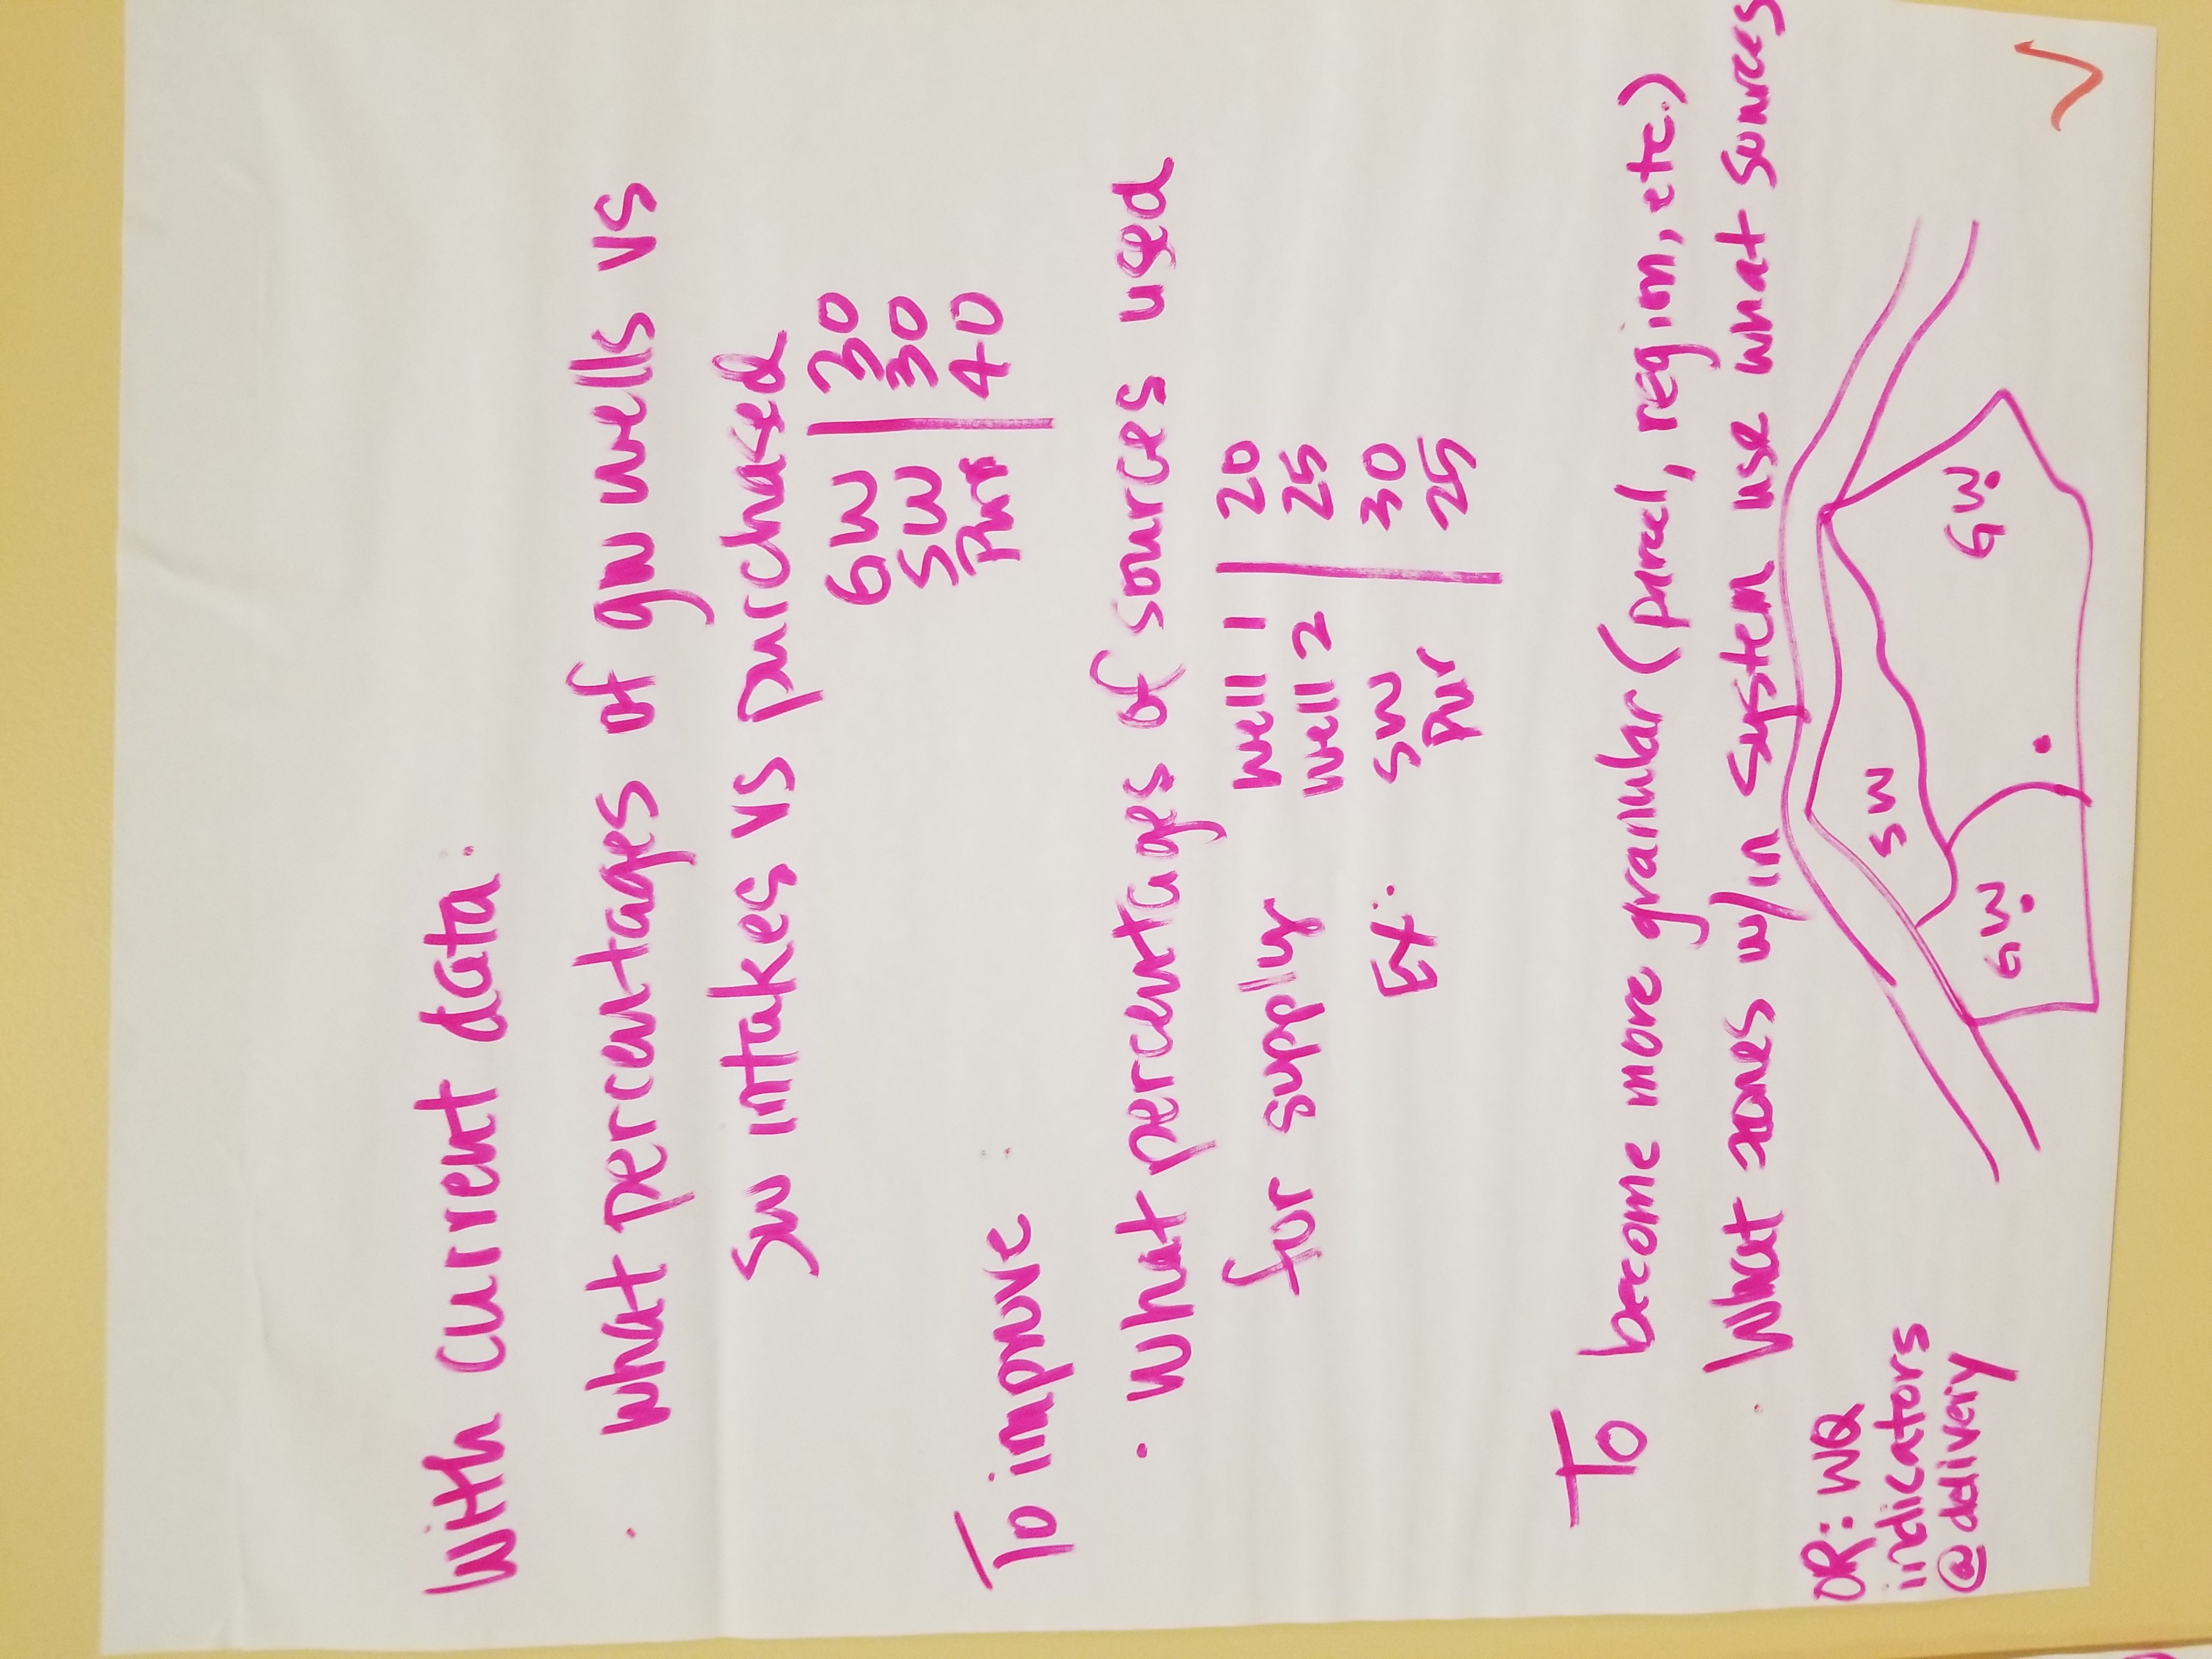 With current data:
· What percentages of gw wells vs
SW intakes vs purchased
GW | 30
SW | 30
Pur | 40
To improve:
· What percentages of sources used
for supply
Well 1 | 20
Well 2 | 25
Ex: SW | 30
Pur | 25
To become more granular (parcel, region, etc.)
· What zones w/in system use what sources
OR: WQ
indicators
@delivery
SW
GW
GW